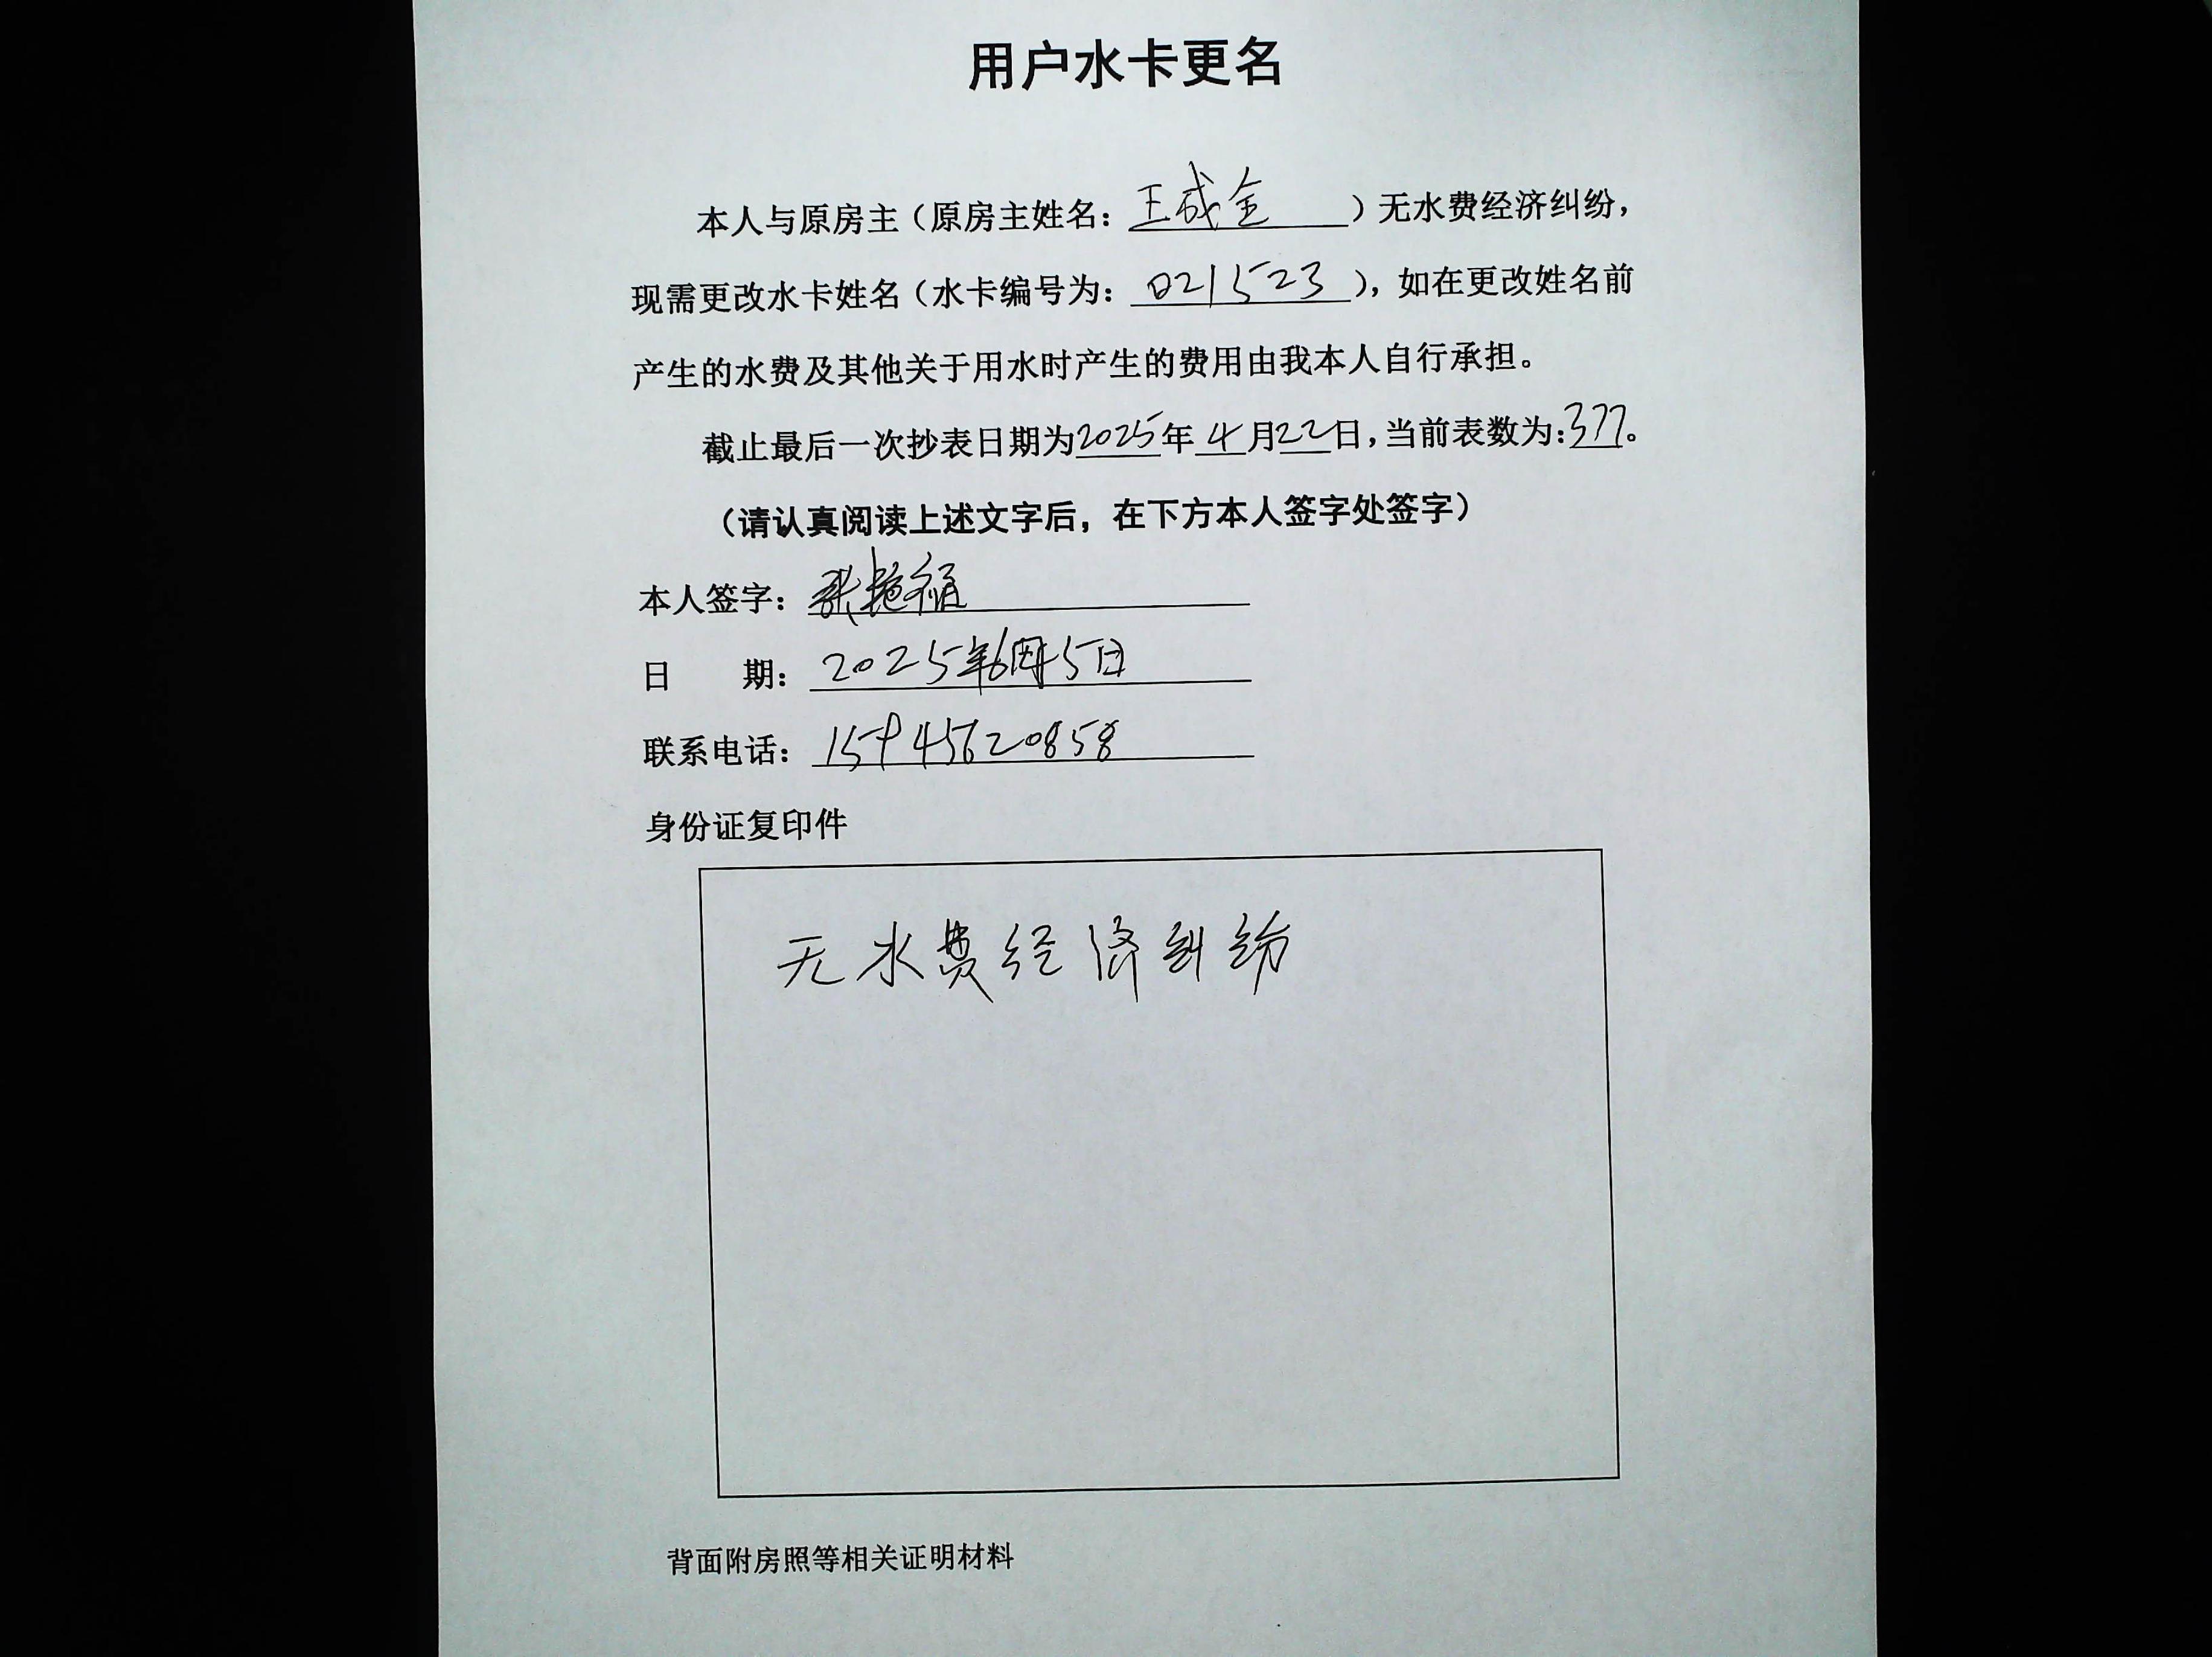 用户水卡更名
本人与原房主（原房主姓名：王成全）无水费经济纠纷，
现需更改水卡姓名（水卡编号为：021523），如在更改姓名前
产生的水费及其他关于用水时产生的费用由我本人自行承担。
截止最后一次抄表日期为2025年4月22日，当前表数为：377。
（请认真阅读上述文字后，在下方本人签字处签字）
本人签字：张艳
日 期：2025年6月5日
联系电话：15945620858
身份证复印件
无水费经济纠纷
背面附房照等相关证明材料